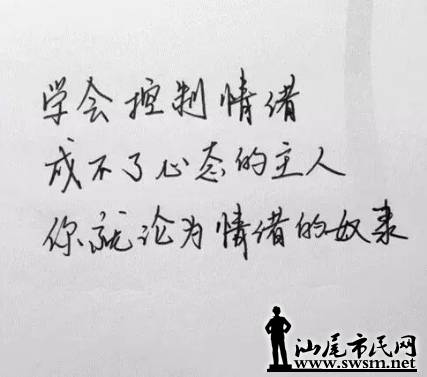 学会控制情绪
成不了心态的主人
你就论为情绪的奴隶
汕尾市民网
www.swsm.net